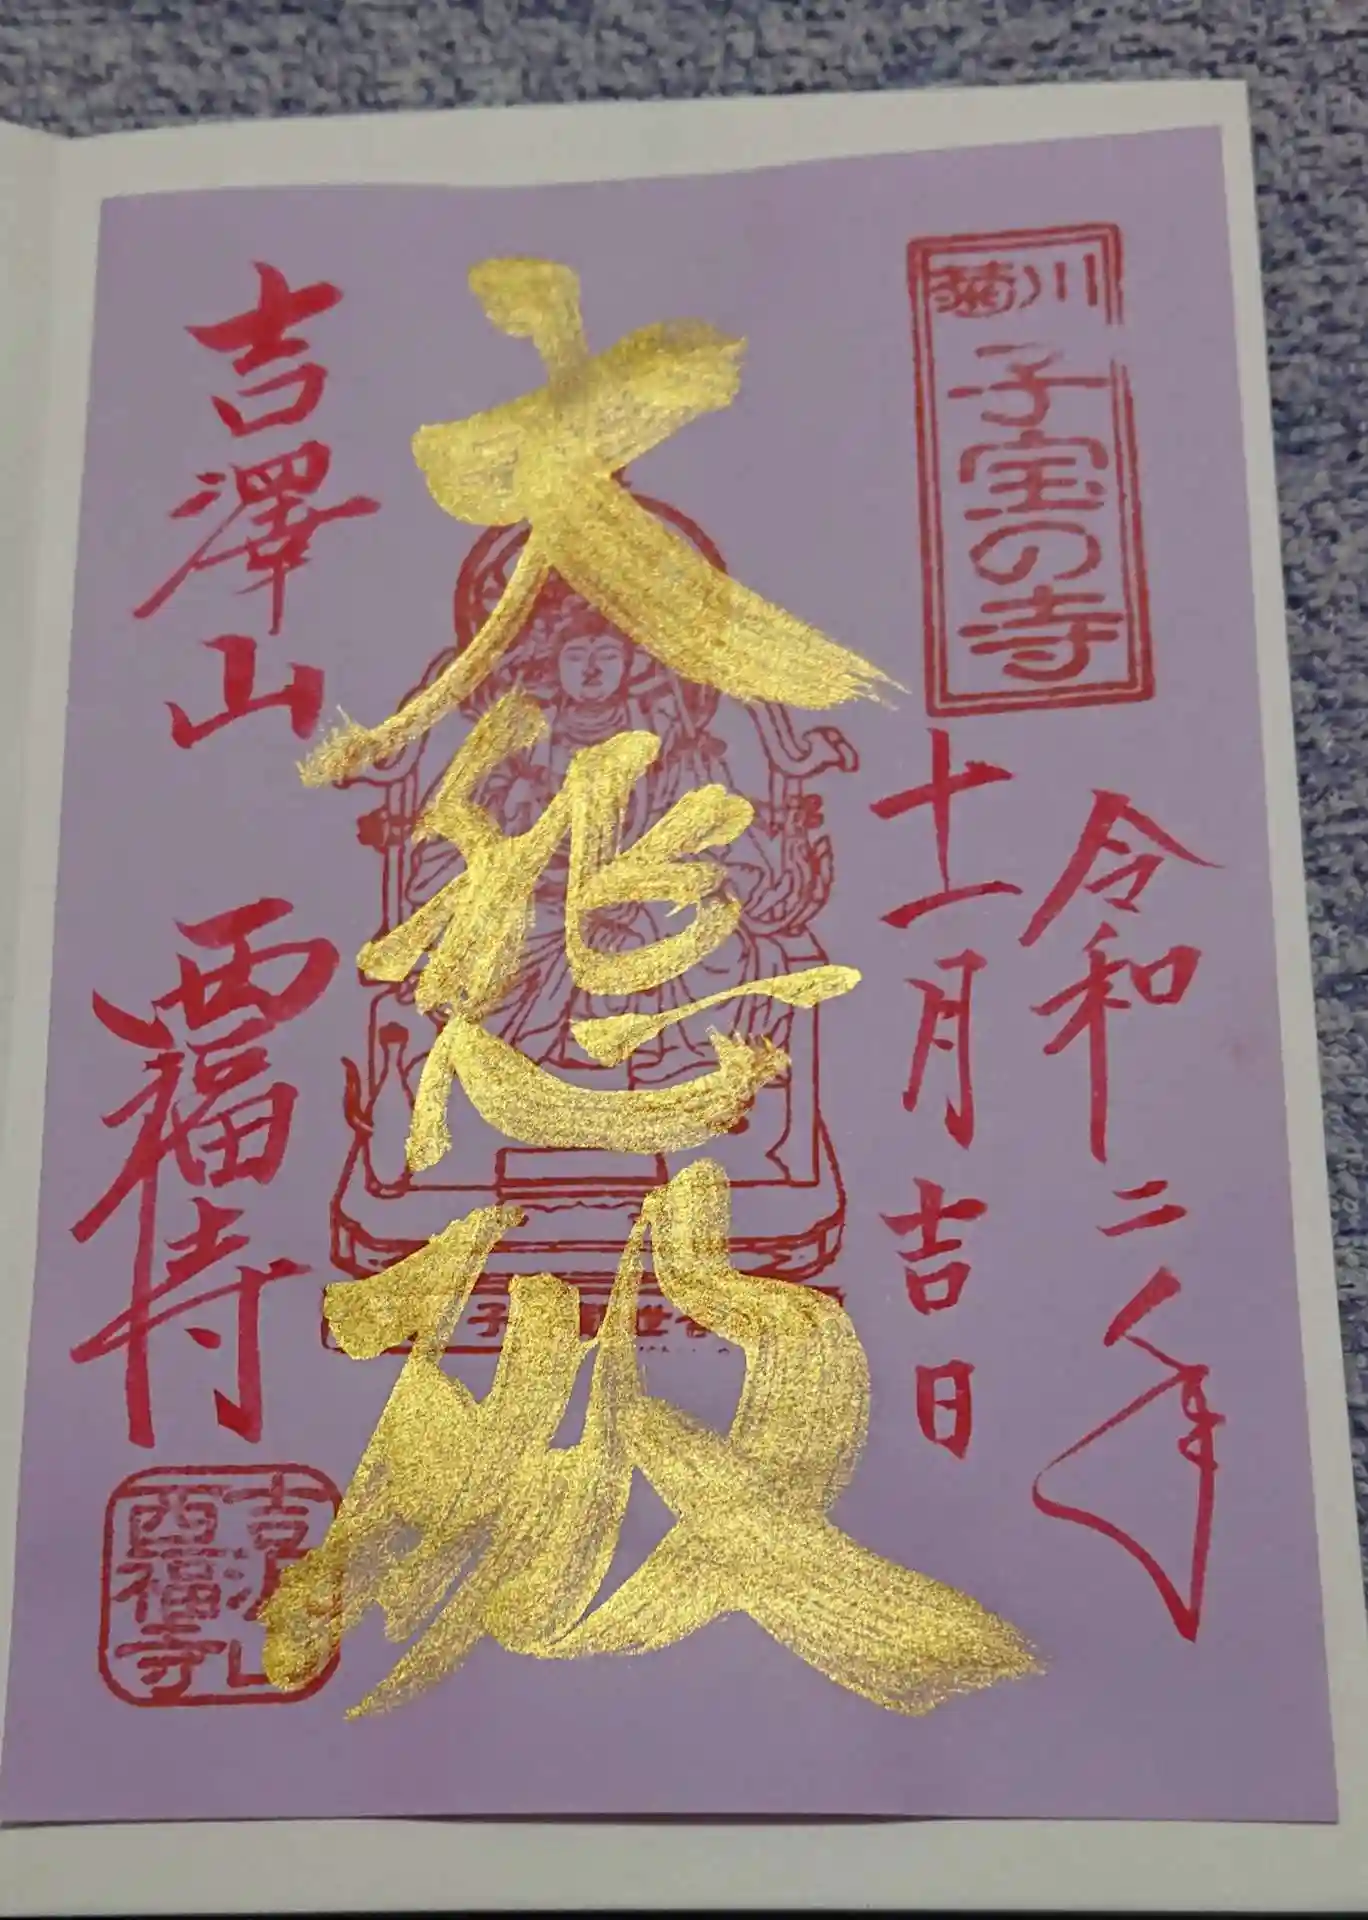 菊川
子宝の寺
令和二年
十一月吉日
大悲殿
吉澤山
西福寺
吉沢山
西福寺